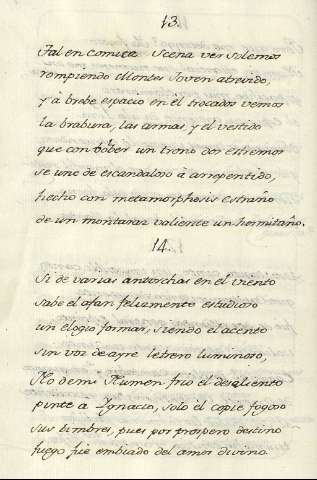 13.
Tal en Comica Scena ver solemos
rompiendo Montes Joven atrevido,
y à brebe espacio en èl trocados vemos
la brabura, las armas, y el vestido
que con bolber un trono dos estremos
se une de escandaloso à arrepentido,
hecho con metamorphosis estraño
de un montaraz valiente un hermitaño.
14.
Si de varias antorchas en el viento
sabe el afan felizmente estudioso
un elogio formar, siendo el acento
sin voz de ayre letrero luminoso,
No de mi Numen frio el desaliento
pinte à Ignacio, solo èl copie fogoso
sus timbres, pues por prospero destino
fuego fue embiado del amor divino.